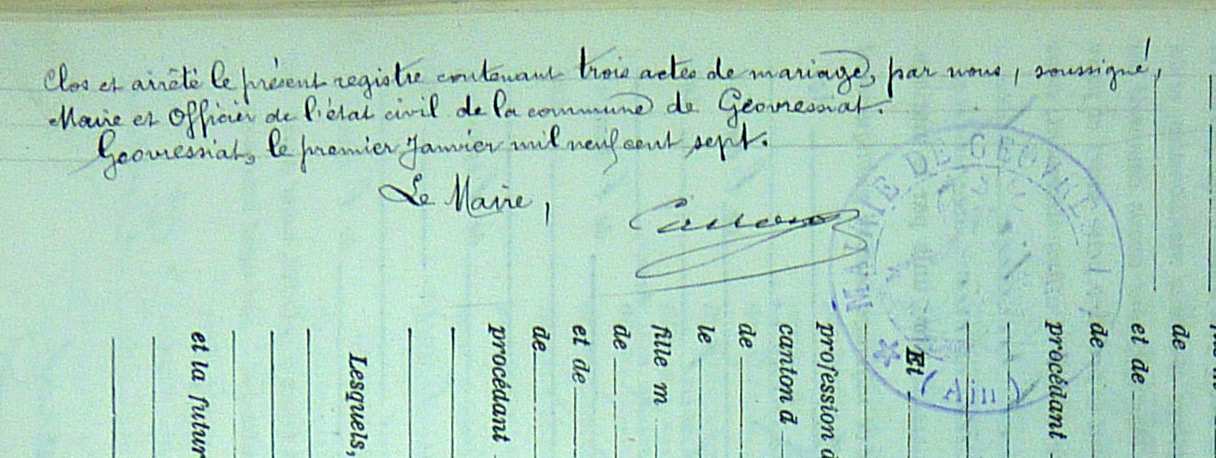 Clos et arrêté le présent registre contenant trois actes de mariage, par nous, soussigné,
Maire et Officier de l'état civil de la commune de Géovressiat.
Géovressiat, le premier Janvier mil neuf cent sept.
Le Maire,
MAIRIE DE GEOVRESSIAT
(Ain)
de
et de
de
procédant
Et
profession d
canton d
de
le
fille m
de
et de
de
procédant
Lesquels,
et la futur